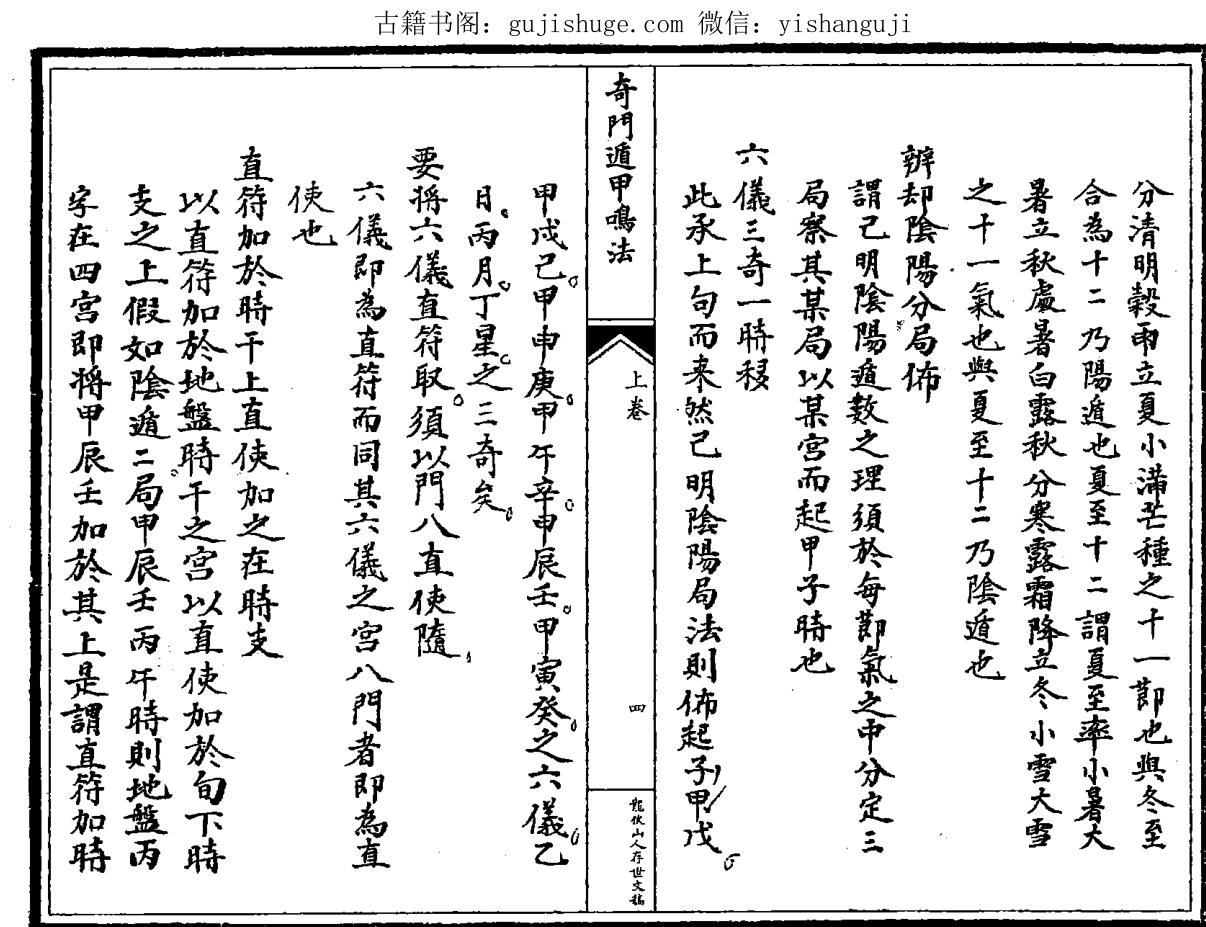 古籍书阁：gujishuge.com 微信：yishanguji
分清明穀雨立夏小滿芒種之十一節也與冬至
合為十二乃陽遁也夏至十二謂夏至率小暑大
暑立秋處暑白露秋分寒露霜降立冬小雪大雪
之十一氣也與夏至十二乃陰遁也
辨却陰陽分局佈
謂已明陰陽遁数之理須於每節氣之中分定三
局察其某局以某宮而起甲子時也
六儀三奇一時移
此承上句而来然已明陰陽局法則佈起子甲戊
奇門遁甲鳴法
上卷
四
龍伏山人存世文稿
甲戌己甲申庚甲午辛甲辰壬甲寅癸之六儀乙
日丙月丁星之三奇矣
要将六儀直符取須以門八直使隨
六儀即為直符而同其六儀之宮八門者即為直
使也
直符加於時干上直使加之在時支
以直符加於地盤時干之宮以直使加於旬下時
支之上假如陰遁二局甲辰壬丙午時則地盤丙
字在四宮即将甲辰壬加於其上是謂直符加時